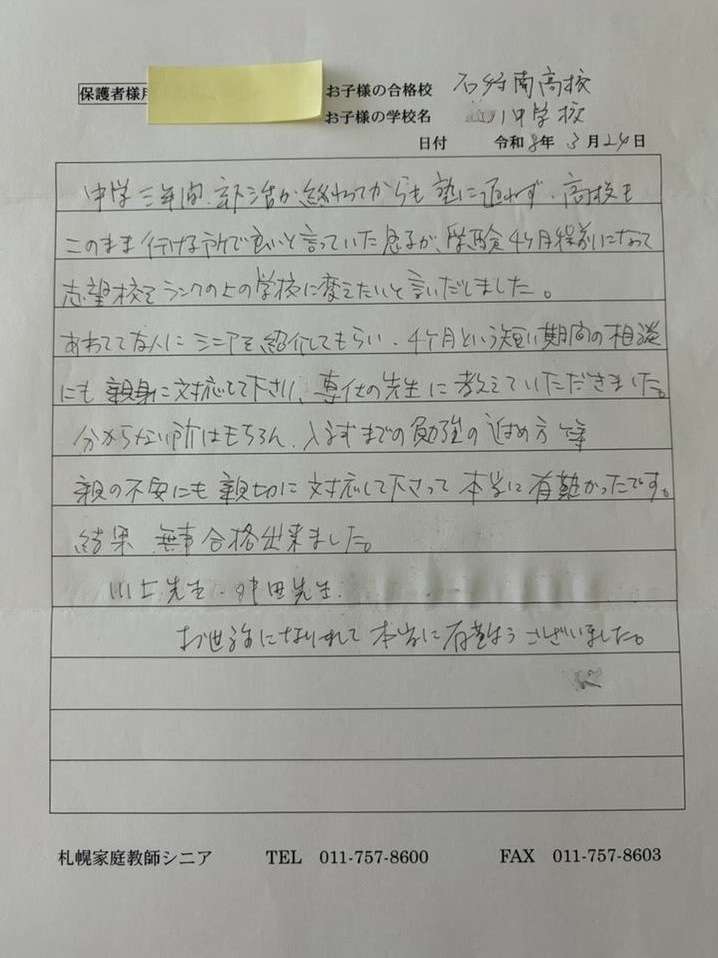 保護者様用
お子様の合格校 石狩南高校
お子様の学校名 川中学校
日付 令和8年3月24日
中学三年間、部活が終わってからも塾に通わず、高校も
このまま行ける所で良いと言っていた息子が、受験4ヶ月程前になって
志望校をランクの上の学校に変えたいと言いだしました。
あわてて友人にシニアを紹介してもらい、4ヶ月という短い期間の相談
にも親身に対応して下さり、専任の先生に教えていただきました。
分からない所はもちろん、入試までの勉強の進め方等
親の不安にも親切に対応して下さって本当に有難かったです。
結果 無事合格出来ました。
川上先生、 先生、
お世話になりまして本当に有難うございました。
札幌家庭教師シニア TEL 011-757-8600 FAX 011-757-8603